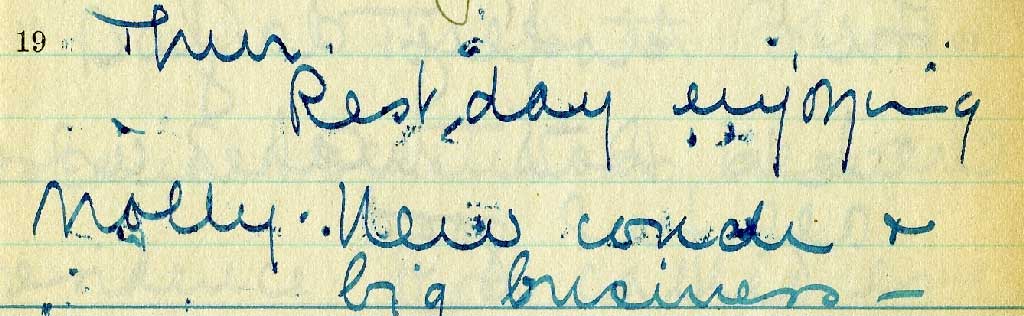 19 Thur.
Rest day enjoying
Molly. New conde &
big business -